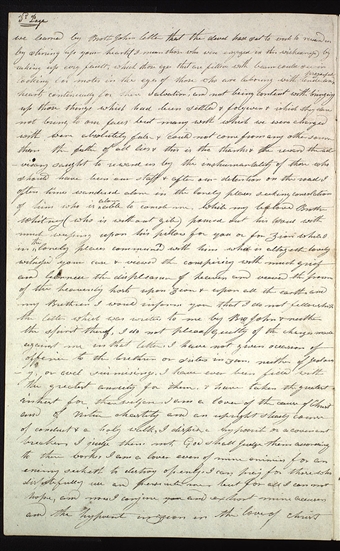 we learned by Broth John letter that the devel had set to work to
by stiring up your hearts I mean those who were ingaged in the wickedness, by
raking up evry fault, which those eyes that are filled with beams could see
looking for motes in the eyes of those who are laboring with
hearts continually for there salvation and not being content with bringing
up those things which had been settled & forgiven & which they dare
not bring to our faces but many with which we were charged
with were absolutely false & could not come from any other sorce
than the father of all lies & this is the thanks the reward the
sought to reward us by the instramentality of those who
should have been our staff & after our detention on the road I
often times wandered alone in the lonely places seeking consolation
of him who is alone able to console me, while my beloved Broth
Whitney (who is without gile) poured out his soul with
much weeping upon his pillow for you or for Zion while I
in the lonely places communed with him who is altogether lovely
your case & viewed the conspiricy with much grief
and learned the displeasure of heaven and viewed the frowns
of the heavenly hosts upon Zion & upon all the earth and
my Brethren I would inform you that I do not
the letter which was writen to me by Bro John & neither
the spirit thereof, I do not plead guilty of the charges made
against me in that letter. I have not given occasion of
offence to the brethren or sisters in Zion, neither of
or evel surmisings, I have ever been filled with
the greatest anxiety for them, & have taken the greatest
intrest for there I am a lover of the cause of Christ
and of virtue chastity and an upright steady course
of conduct & a holy walk, I dispise a hypocrit or a covenant
breaker, I judge them not, God shall judge them according
to their works I am a lover even of mine enimies for an
enemy seeketh to destroy openly. I can pray for those who
dispitefully use and persicute me but for all I cannot
hope, and now I conjure you and exhort mine accusers
and the hypocrit in Zion in the love of Christ